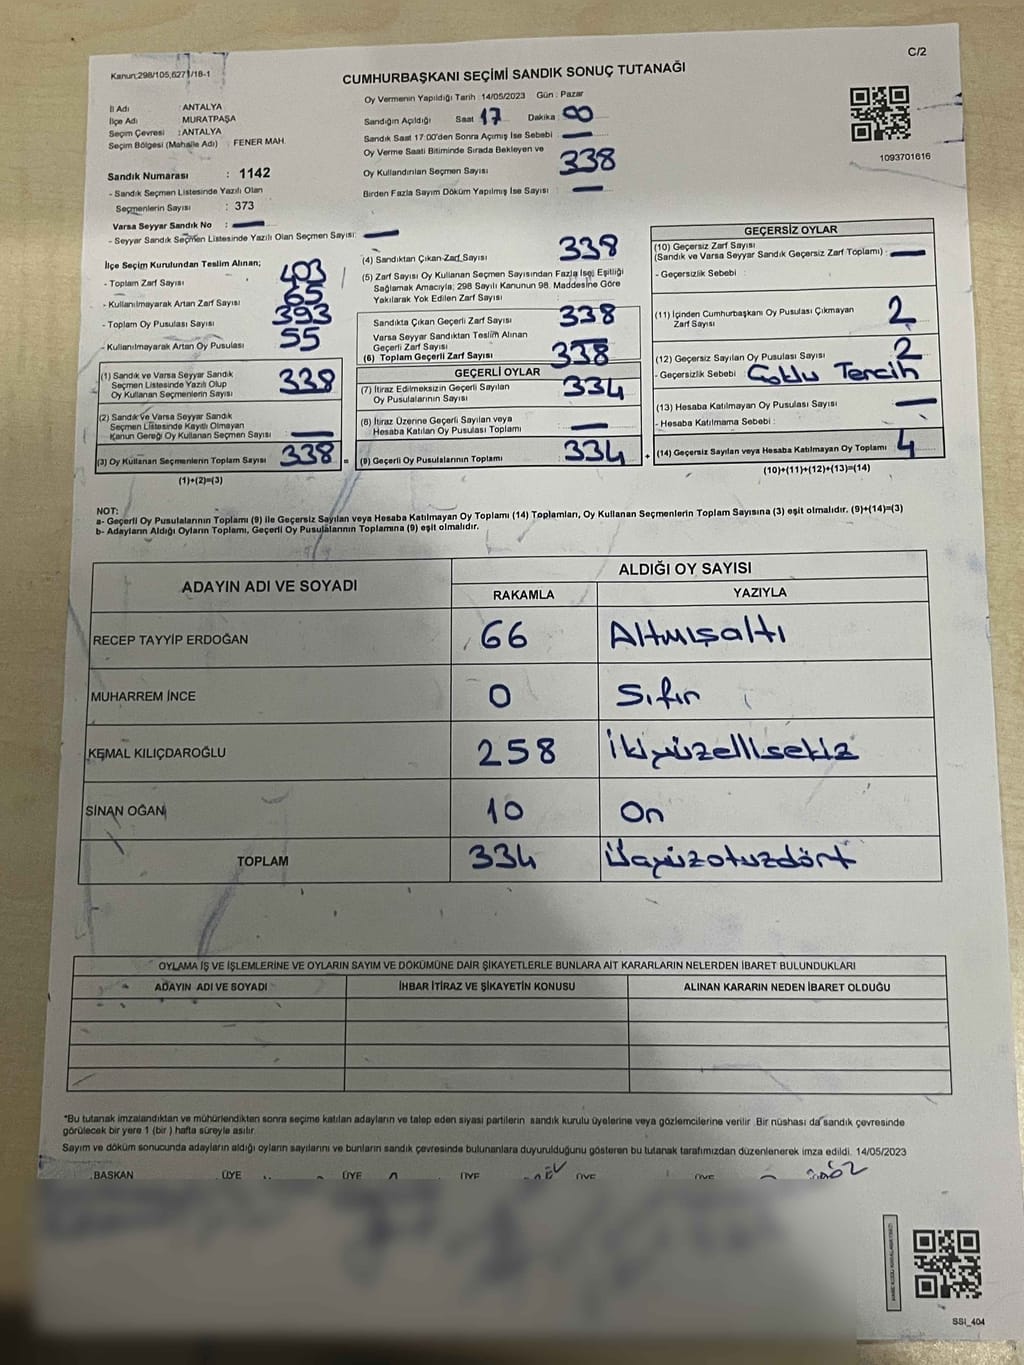 C/2
Kanun;298/105,6271/18-1
CUMHURBAŞKANI SEÇİMİ SANDIK SONUÇ TUTANAĞI
İl Adı : ANTALYA
İlçe Adı : MURATPAŞA
Seçim Çevresi : ANTALYA
Seçim Bölgesi (Mahalle Adı) : FENER MAH.
Sandık Numarası : 1142
- Sandık Seçmen Listesinde Yazılı Olan
Seçmenlerin Sayısı : 373
Varsa Seyyar Sandık No :
- Seyyar Sandık Seçmen Listesinde Yazılı Olan Seçmen Sayısı:
Oy Vermenin Yapıldığı Tarih : 14/05/2023 Gün : Pazar
Sandığın Açıldığı Saat : 17 Dakika : 00
Sandık Saat 17:00'den Sonra Açımış İse Sebebi :
Oy Verme Saati Bitiminde Sırada Bekleyen ve
Oy Kullandırılan Seçmen Sayısı : 338
Birden Fazla Sayım Döküm Yapılmış İse Sayısı :
1093701616
İlçe Seçim Kurulundan Teslim Alınan;
- Toplam Zarf Sayısı : 403
- Kullanılmayarak Artan Zarf Sayısı : 65
- Toplam Oy Pusulası Sayısı : 393
- Kullanılmayarak Artan Oy Pusulası : 55
(1) Sandık ve Varsa Seyyar Sandık
Seçmen Listesinde Yazılı Olup
Oy Kullanan Seçmenlerin Sayısı : 338
(2) Sandık ve Varsa Seyyar Sandık
Seçmen Listesinde Kayıtlı Olmayan
Kanun Gereği Oy Kullanan Seçmen Sayısı :
(3) Oy Kullanan Seçmenlerin Toplam Sayısı : 338
(1)+(2)=(3)
(4) Sandıktan Çıkan Zarf Sayısı : 338
(5) Zarf Sayısı Oy Kullanan Seçmen Sayısından Fazla İse; Eşitliği
Sağlamak Amacıyla, 298 Sayılı Kanunun 98. Maddesine Göre
Yakılarak Yok Edilen Zarf Sayısı :
Sandıkta Çıkan Geçerli Zarf Sayısı : 338
Varsa Seyyar Sandıktan Teslim Alınan
Geçerli Zarf Sayısı :
(6) Toplam Geçerli Zarf Sayısı : 338
GEÇERLİ OYLAR
(7) İtiraz Edilmeksizin Geçerli Sayılan
Oy Pusulalarının Sayısı : 334
(8) İtiraz Üzerine Geçerli Sayılan veya
Hesaba Katılan Oy Pusulası Toplamı :
= (9) Geçerli Oy Pusulalarının Toplamı : 334
GEÇERSİZ OYLAR
(10) Geçersiz Zarf Sayısı
(Sandık ve Varsa Seyyar Sandık Geçersiz Zarf Toplamı) :
- Geçersizlik Sebebi :
(11) İçinden Cumhurbaşkanı Oy Pusulası Çıkmayan
Zarf Sayısı : 2
(12) Geçersiz Sayılan Oy Pusulası Sayısı : 2
- Geçersizlik Sebebi : Çoklu Tercih
(13) Hesaba Katılmayan Oy Pusulası Sayısı :
- Hesaba Katılmama Sebebi :
+ (14) Geçersiz Sayılan veya Hesaba Katılmayan Oy Toplamı : 4
(10)+(11)+(12)+(13)=(14)
NOT:
a- Geçerli Oy Pusulalarının Toplamı (9) ile Geçersiz Sayılan veya Hesaba Katılmayan Oy Toplamı (14) Toplamları, Oy Kullanan Seçmenlerin Toplam Sayısına (3) eşit olmalıdır. (9)+(14)=(3)
b- Adayların Aldığı Oyların Toplamı, Geçerli Oy Pusulalarının Toplamına (9) eşit olmalıdır.
ADAYIN ADI VE SOYADI ALDIĞI OY SAYISI
RAKAMLA YAZIYLA
RECEP TAYYİP ERDOĞAN 66 Altmışaltı
MUHARREM İNCE 0 Sıfır
KEMAL KILIÇDAROĞLU 258 İkiyüzellisekiz
SİNAN OĞAN 10 On
TOPLAM 334 Üçyüzotuzdört
OYLAMA İŞ VE İŞLEMLERİNE VE OYLARIN SAYIM VE DÖKÜMÜNE DAİR ŞİKAYETLERLE BUNLARA AİT KARARLARIN NELERDEN İBARET BULUNDUKLARI
ADAYIN ADI VE SOYADI İHBAR İTİRAZ VE ŞİKAYETİN KONUSU ALINAN KARARIN NEDEN İBARET OLDUĞU
*Bu tutanak imzalandıktan ve mühürlendikten sonra seçime katılan adayların ve talep eden siyasi partilerin sandık kurulu üyelerine veya gözlemcilerine verilir. Bir nüshası da sandık çevresinde
görülecek bir yere 1 (bir) hafta süreyle asılır.
Sayım ve döküm sonucunda adayların aldığı oyların sayılarını ve bunların sandık çevresinde bulunanlara duyurulduğunu gösteren bu tutanak tarafımızdan düzenlenerek imza edildi. 14/05/2023
BAŞKAN ÜYE ÜYE ÜYE ÜYE ÜYE
SSI_404